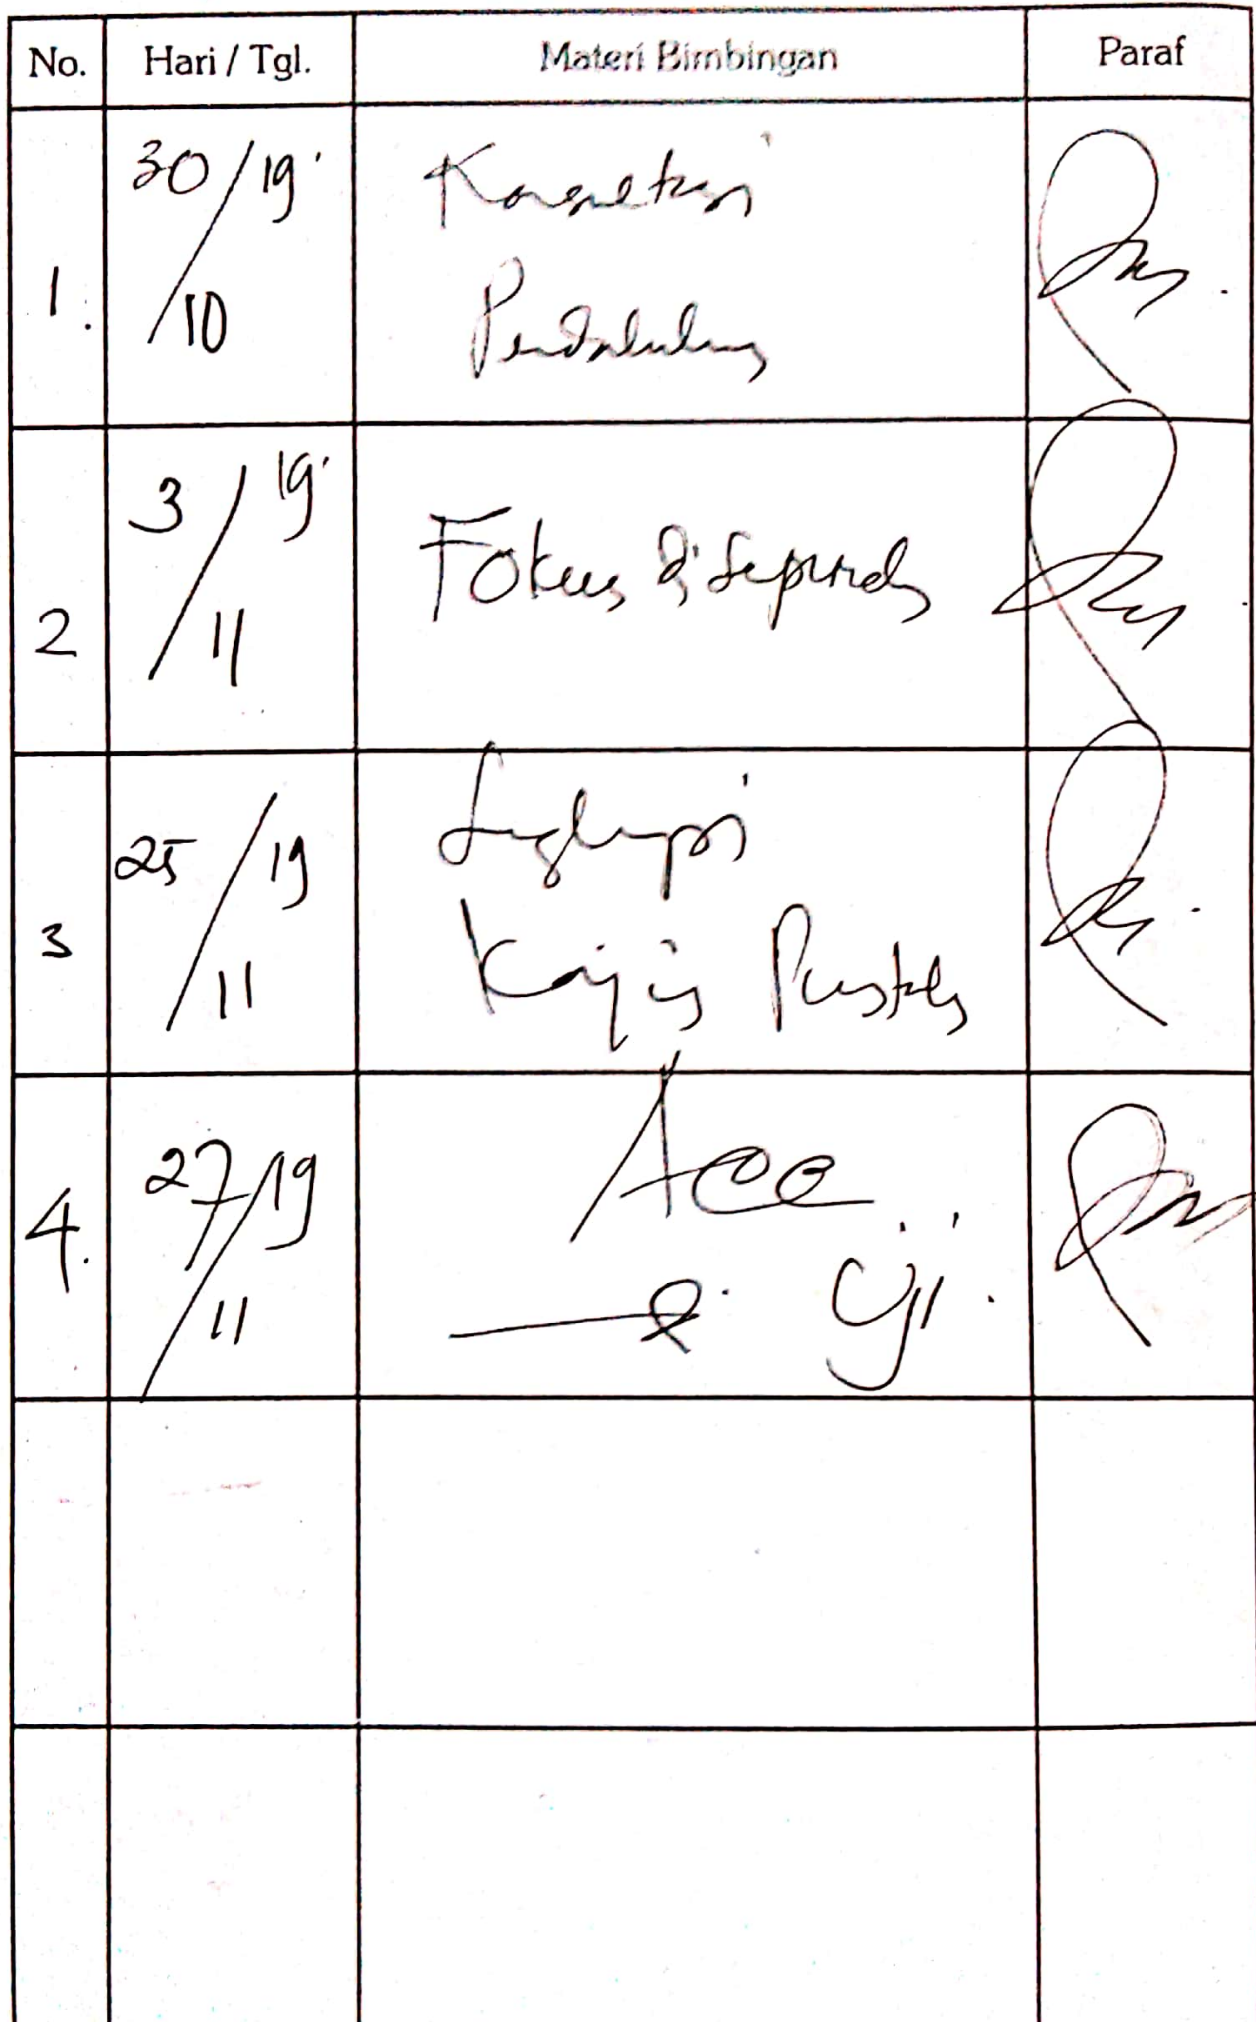 No. Hari / Tgl. Materi Bimbingan Paraf
1. 30/10 19' Konsultasi
Pendahuluan
2 3/11 19' Fokus di
3 25/11 19 Lengkapi
Kajian Pustaka
4. 27/11 19 Acc
di Uji.